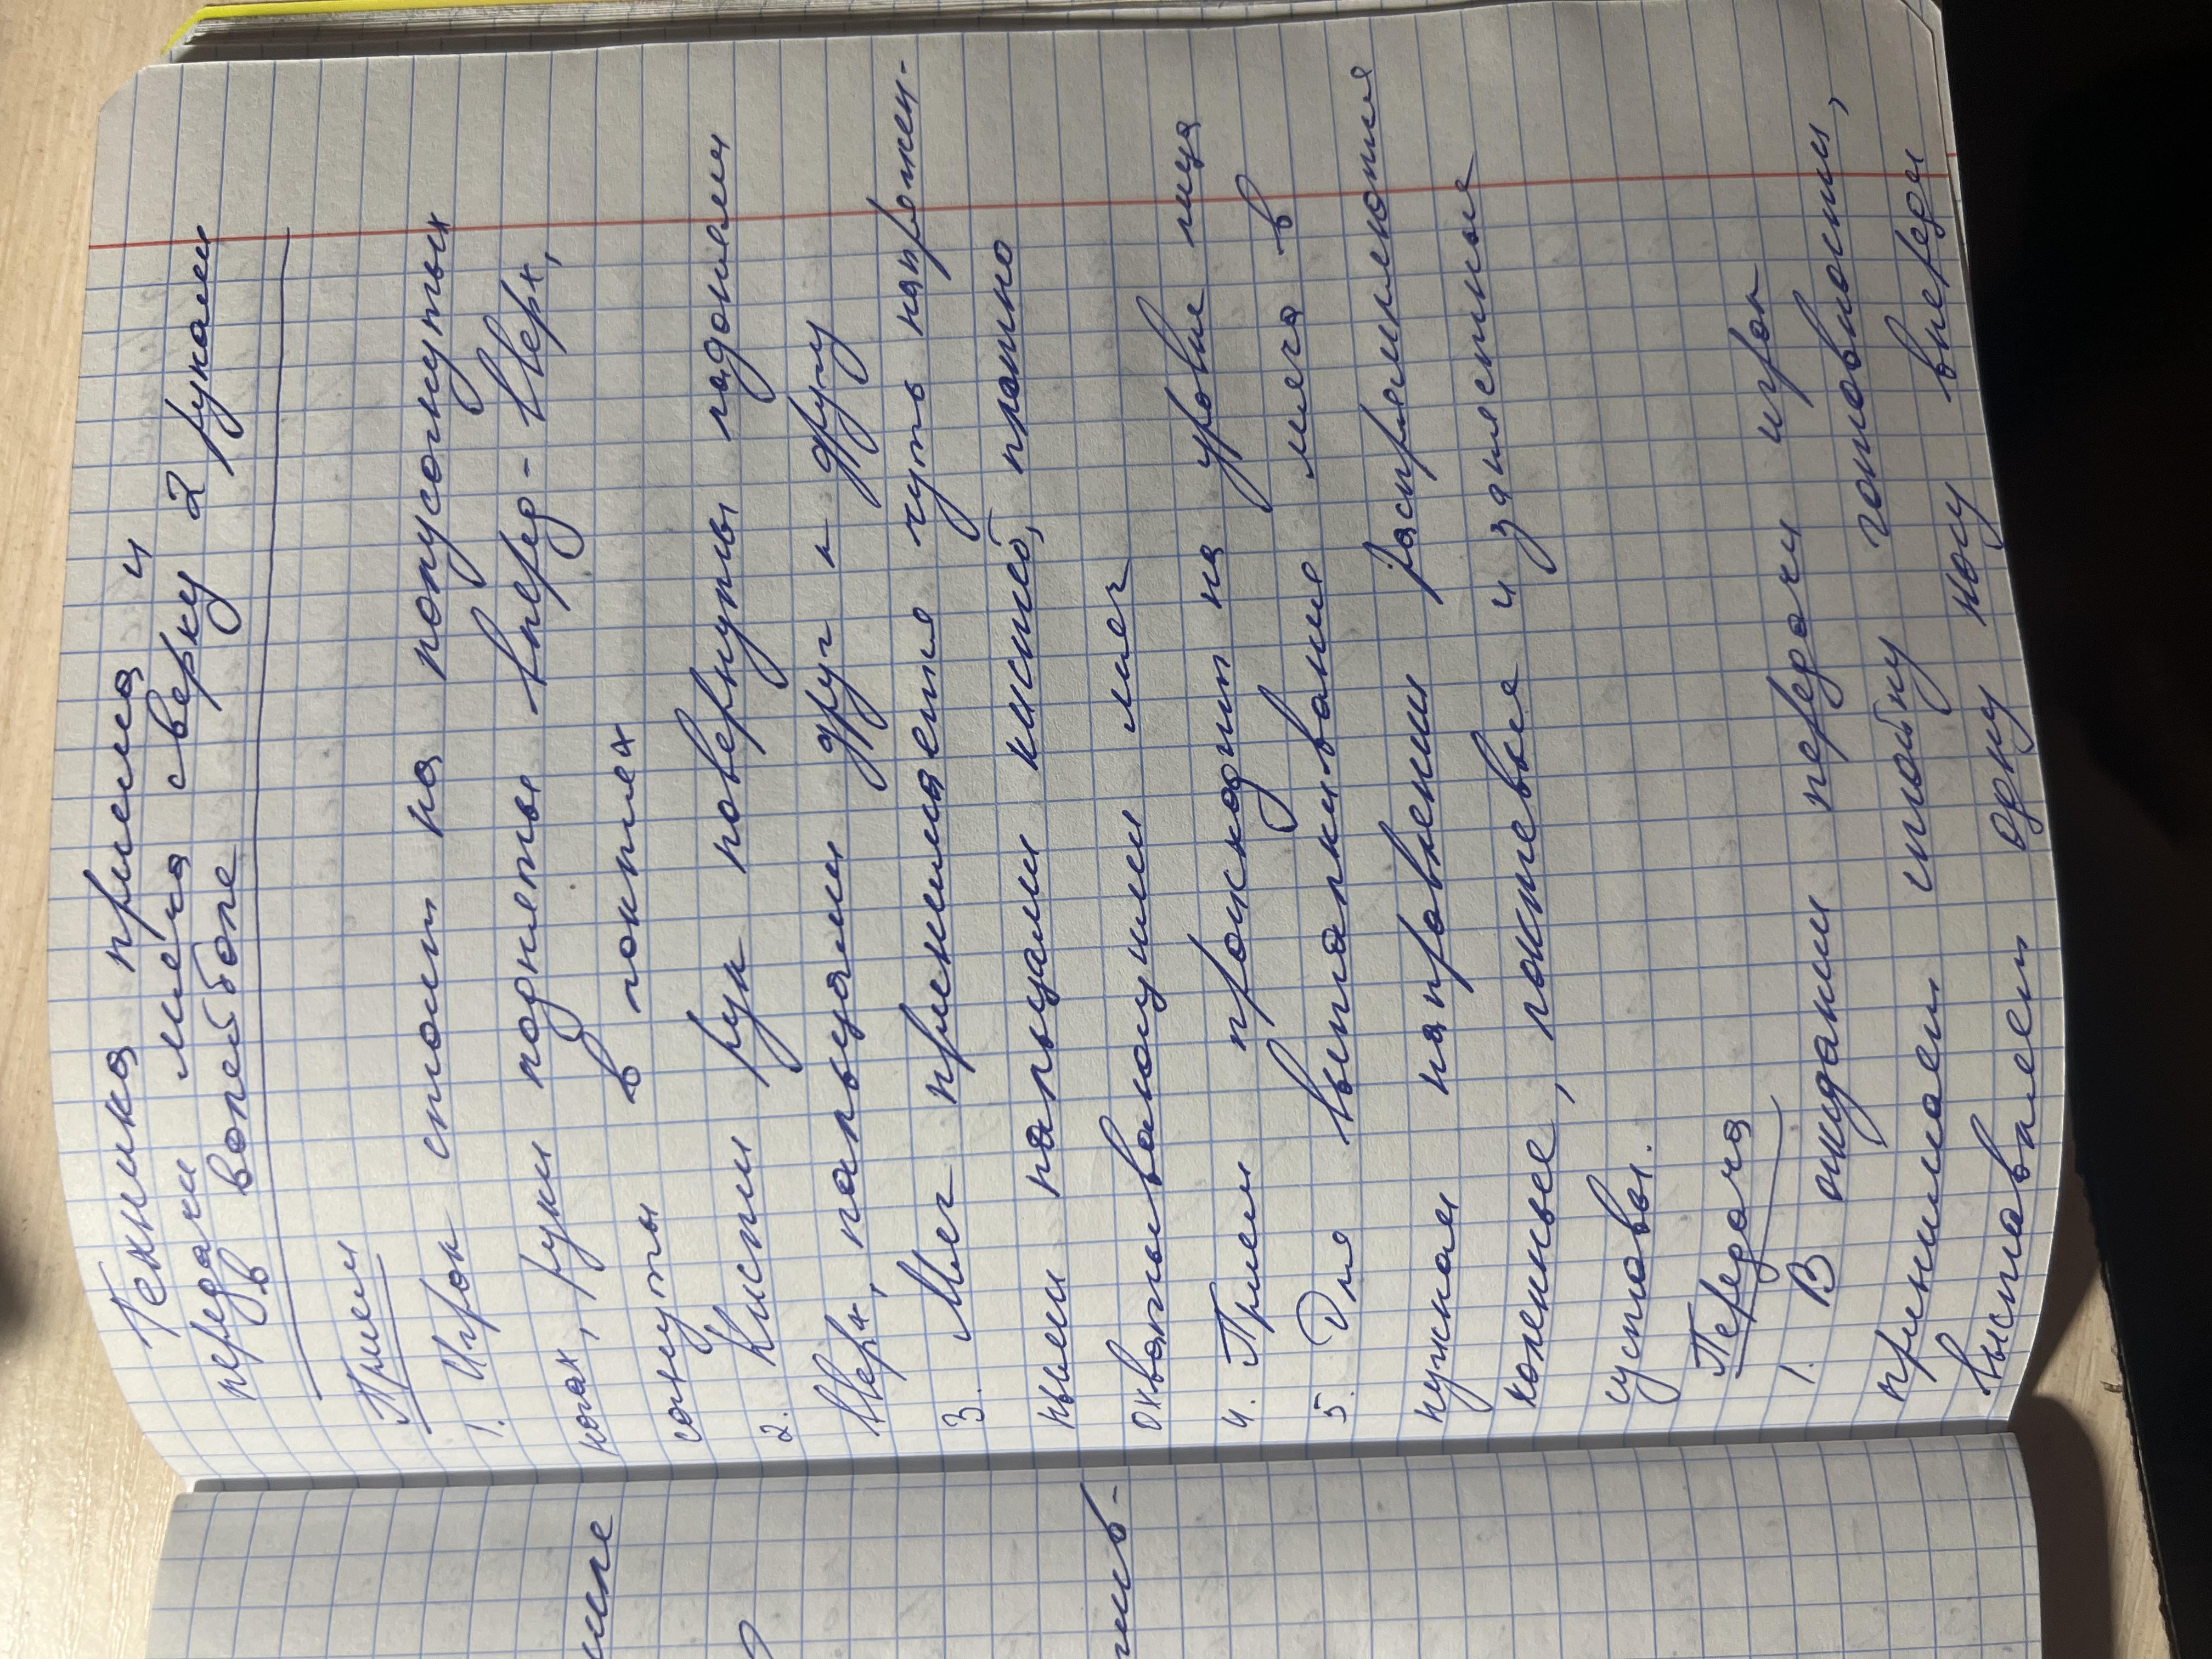 Техника приема и
передачи мяча сверху 2 руками
в волейболе
Прием
1. Игрок стоит на полусогнутых
ногах, руки подняты вперед-вверх,
согнуты в локтях
2. Кисти рук повернуты ладонями
вверх, пальцами друг к другу
3. Мяч принимается чуть напряжен-
ными пальцами кистей, плотно
охватывающими мяч
4. Прием происходит на уровне лица
5. Для выталкивания мяча в
нужном направлении распрямляются
коленные, локтевые и запястные
суставы.
Передача
1. В ожидании передачи игрок
принимает стойку готовности,
выставляет одну ногу вперед